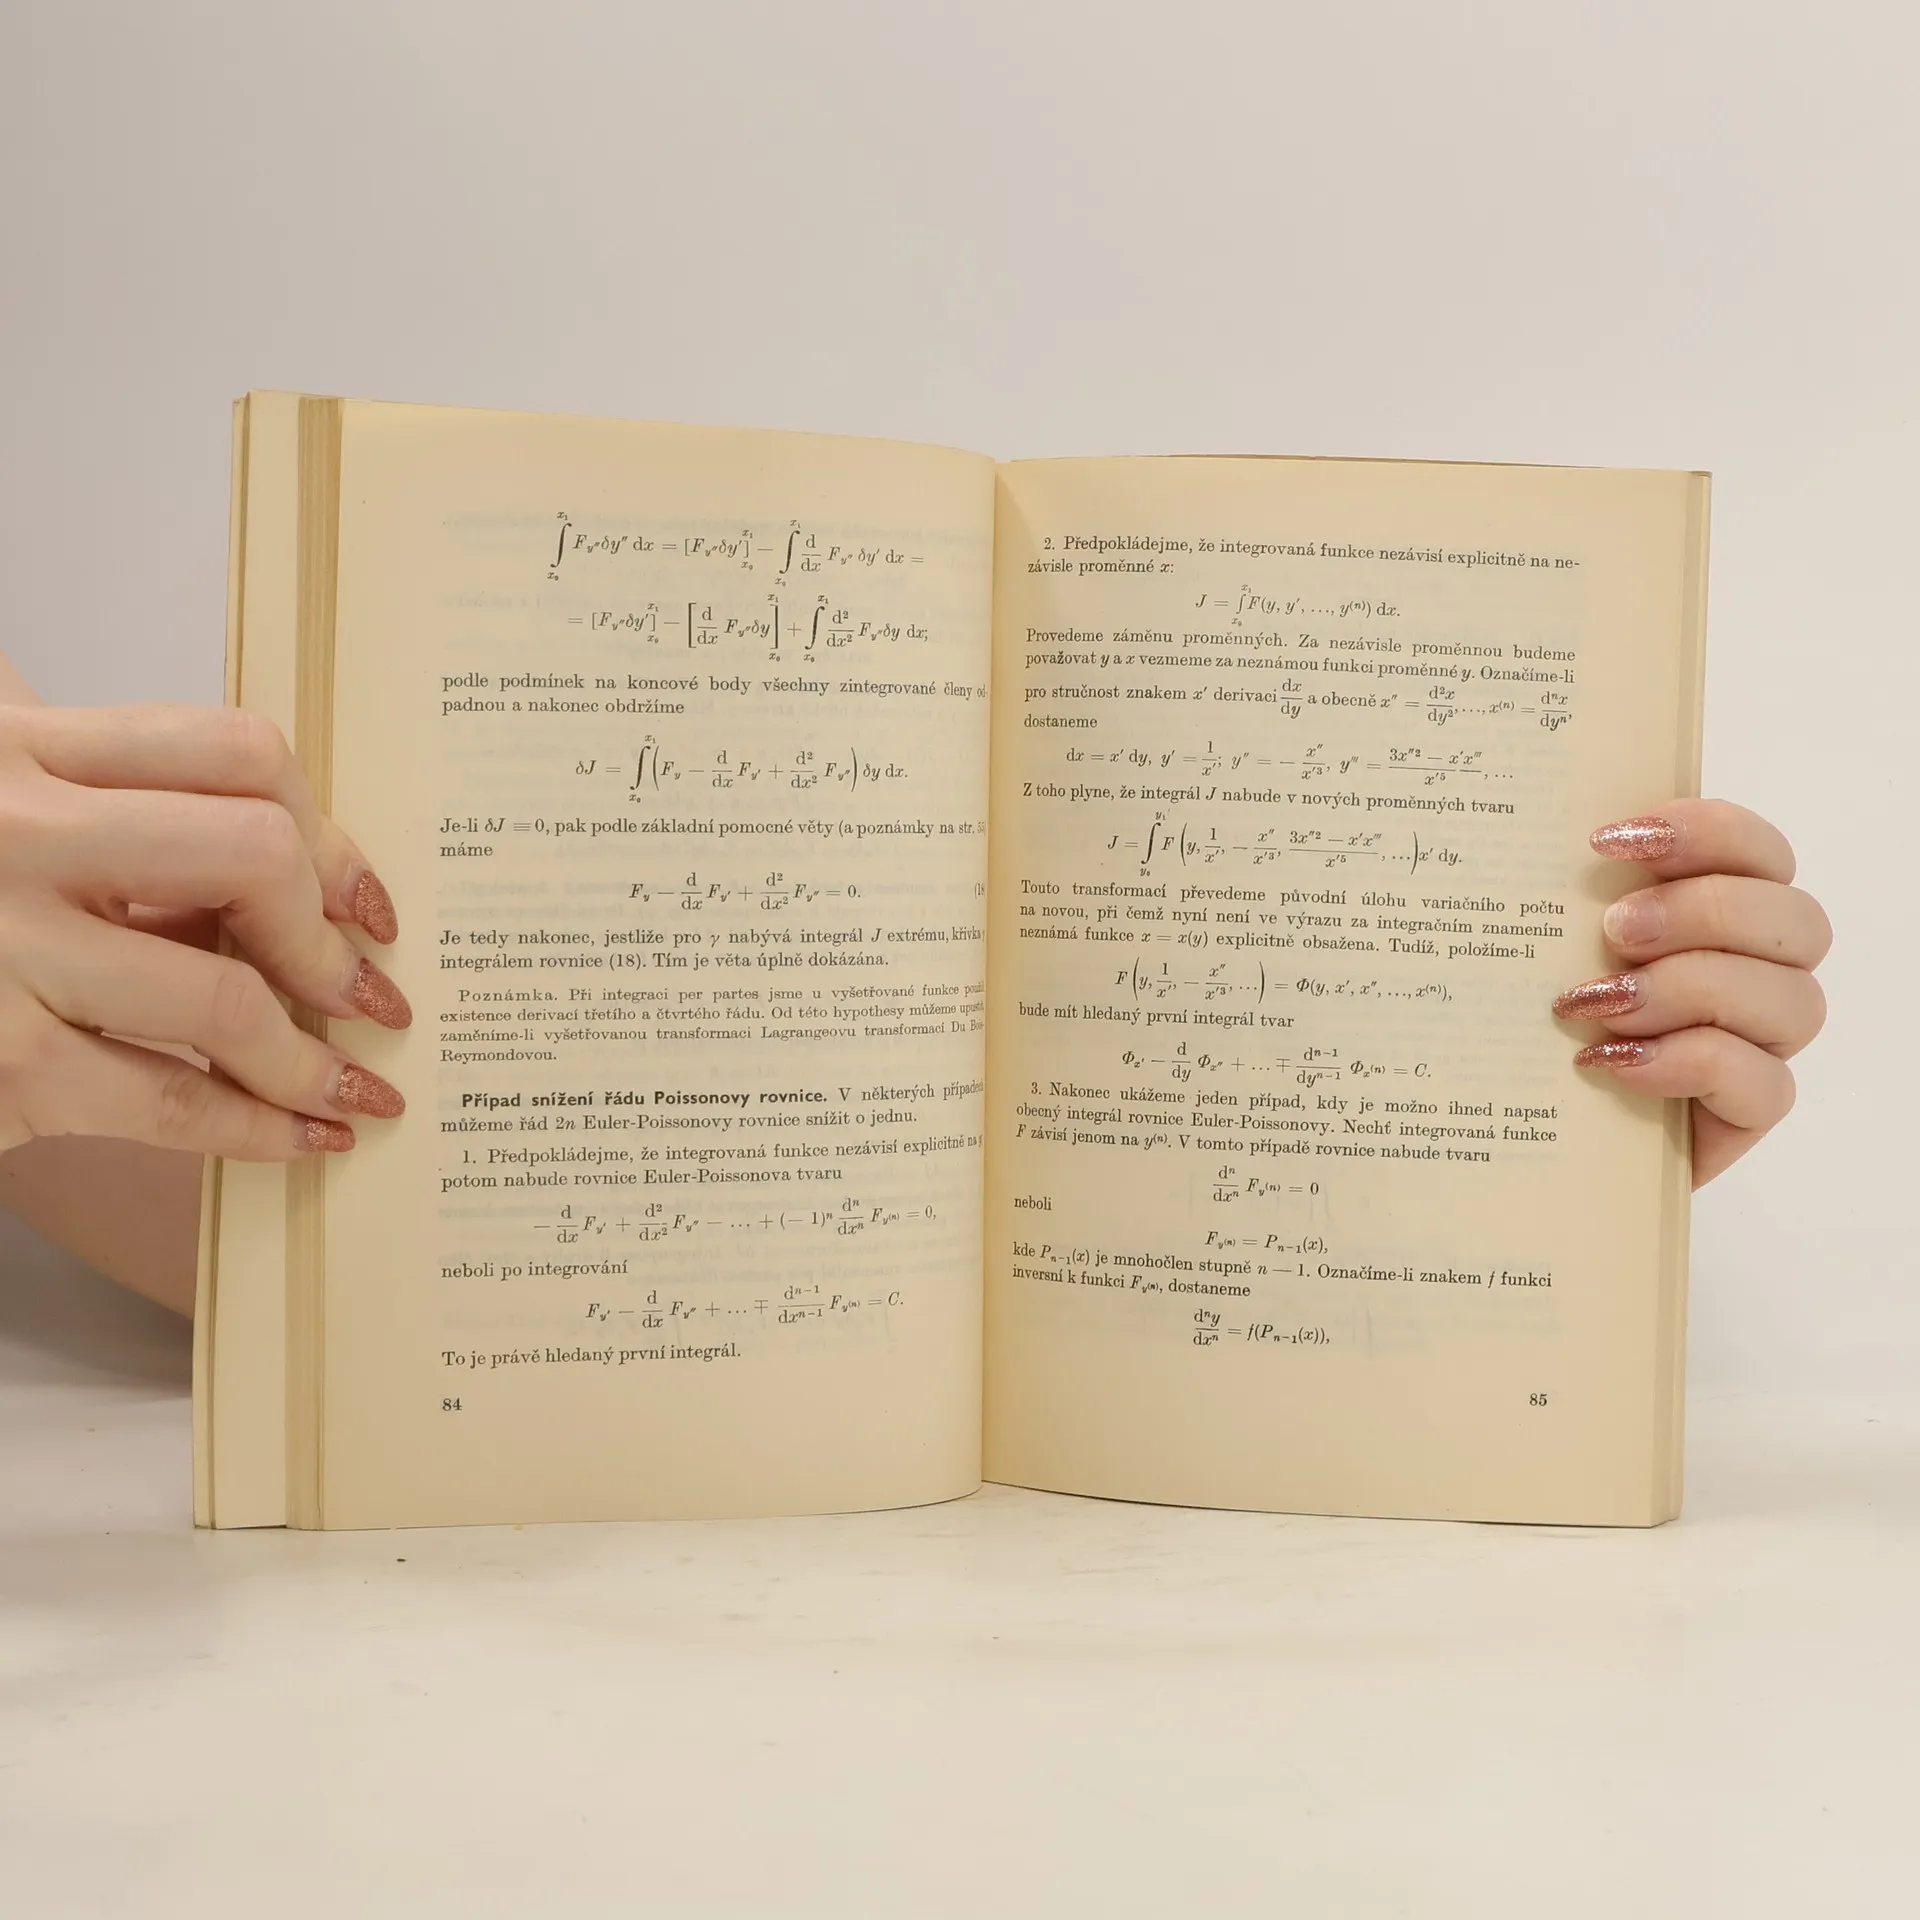 ∫_{x₀}^{x₁} F_{y″}δy″ dx = [F_{y″}δy′]_{x₀}^{x₁} — ∫_{x₀}^{x₁} d/dx F_{y″} δy′ dx =
= [F_{y″}δy′]_{x₀}^{x₁} — [d/dx F_{y″}δy]_{x₀}^{x₁} + ∫_{x₀}^{x₁} d²/dx² F_{y″}δy dx;
podle podmínek na koncové body všechny zintegrované členy od-
padnou a nakonec obdržíme
δJ = ∫_{x₀}^{x₁} (F_y — d/dx F_{y′} + d²/dx² F_{y″}) δy dx.
Je-li δJ = 0, pak podle základní pomocné věty (a poznámky na str.
máme
F_y — d/dx F_{y′} + d²/dx² F_{y″} = 0. (18
Je tedy nakonec, jestliže pro γ nabývá integrál J extrému, křivka
integrálem rovnice (18). Tím je věta úplně dokázána.
Poznámka. Při integraci per partes jsme u vyšetřované funkce
existence derivací třetího a čtvrtého řádu. Od této hypothesy můžeme
zaměníme-li vyšetřovanou transformaci Lagrangeovu transformací Du Bois-
Reymondovou.
Případ snížení řádu Poissonovy rovnice. V některých případech
můžeme řád 2n Euler-Poissonovy rovnice snížit o jednu.
1. Předpokládejme, že integrovaná funkce nezávisí explicitně na
potom nabude rovnice Euler-Poissonova tvaru
— d/dx F_{y′} + d²/dx² F_{y″} — … + (— 1)ⁿ dⁿ/dxⁿ F_{y⁽ⁿ⁾} = 0,
neboli po integrování
F_{y′} — d/dx F_{y″} + … ∓ dⁿ⁻¹/dxⁿ⁻¹ F_{y⁽ⁿ⁾} = C.
To je právě hledaný první integrál.
84
2. Předpokládejme, že integrovaná funkce nezávisí explicitně na ne-
závisle proměnné x:
J = ∫_{x₀}^{x₁} F(y, y′, …, y⁽ⁿ⁾) dx.
Provedeme záměnu proměnných. Za nezávisle proměnnou budeme
považovat y a x vezmeme za neznámou funkci proměnné y. Označíme-li
pro stručnost znakem x′ derivaci dx/dy a obecně x″ = d²x/dy², …, x⁽ⁿ⁾ = dⁿx/dyⁿ,
dostaneme
dx = x′ dy, y′ = 1/x′; y″ = — x″/x′³, y‴ = (3x″² — x′x‴)/x′⁵, …
Z toho plyne, že integrál J nabude v nových proměnných tvaru
J = ∫_{y₀}^{y₁} F (y, 1/x′, — x″/x′³, (3x″² — x′x‴)/x′⁵, …) x′ dy.
Touto transformací převedeme původní úlohu variačního počtu
na novou, při čemž nyní není ve výrazu za integračním znamením
neznámá funkce x = x(y) explicitně obsažena. Tudíž, položíme-li
F (y, 1/x′, — x″/x′³, …) = Φ(y, x′, x″, …, x⁽ⁿ⁾),
bude mít hledaný první integrál tvar
Φ_{x′} — d/dy Φ_{x″} + … ∓ dⁿ⁻¹/dyⁿ⁻¹ Φ_{x⁽ⁿ⁾} = C.
3. Nakonec ukážeme jeden případ, kdy je možno ihned napsat
obecný integrál rovnice Euler-Poissonovy. Nechť integrovaná funkce
F závisí jenom na y⁽ⁿ⁾. V tomto případě rovnice nabude tvaru
dⁿ/dxⁿ F_{y⁽ⁿ⁾} = 0
neboli
F_{y⁽ⁿ⁾} = P_{n—1}(x),
kde P_{n—1}(x) je mnohočlen stupně n — 1. Označíme-li znakem f funkci
inversní k funkci F_{y⁽ⁿ⁾}, dostaneme
dⁿy/dxⁿ = f(P_{n—1}(x)),
85